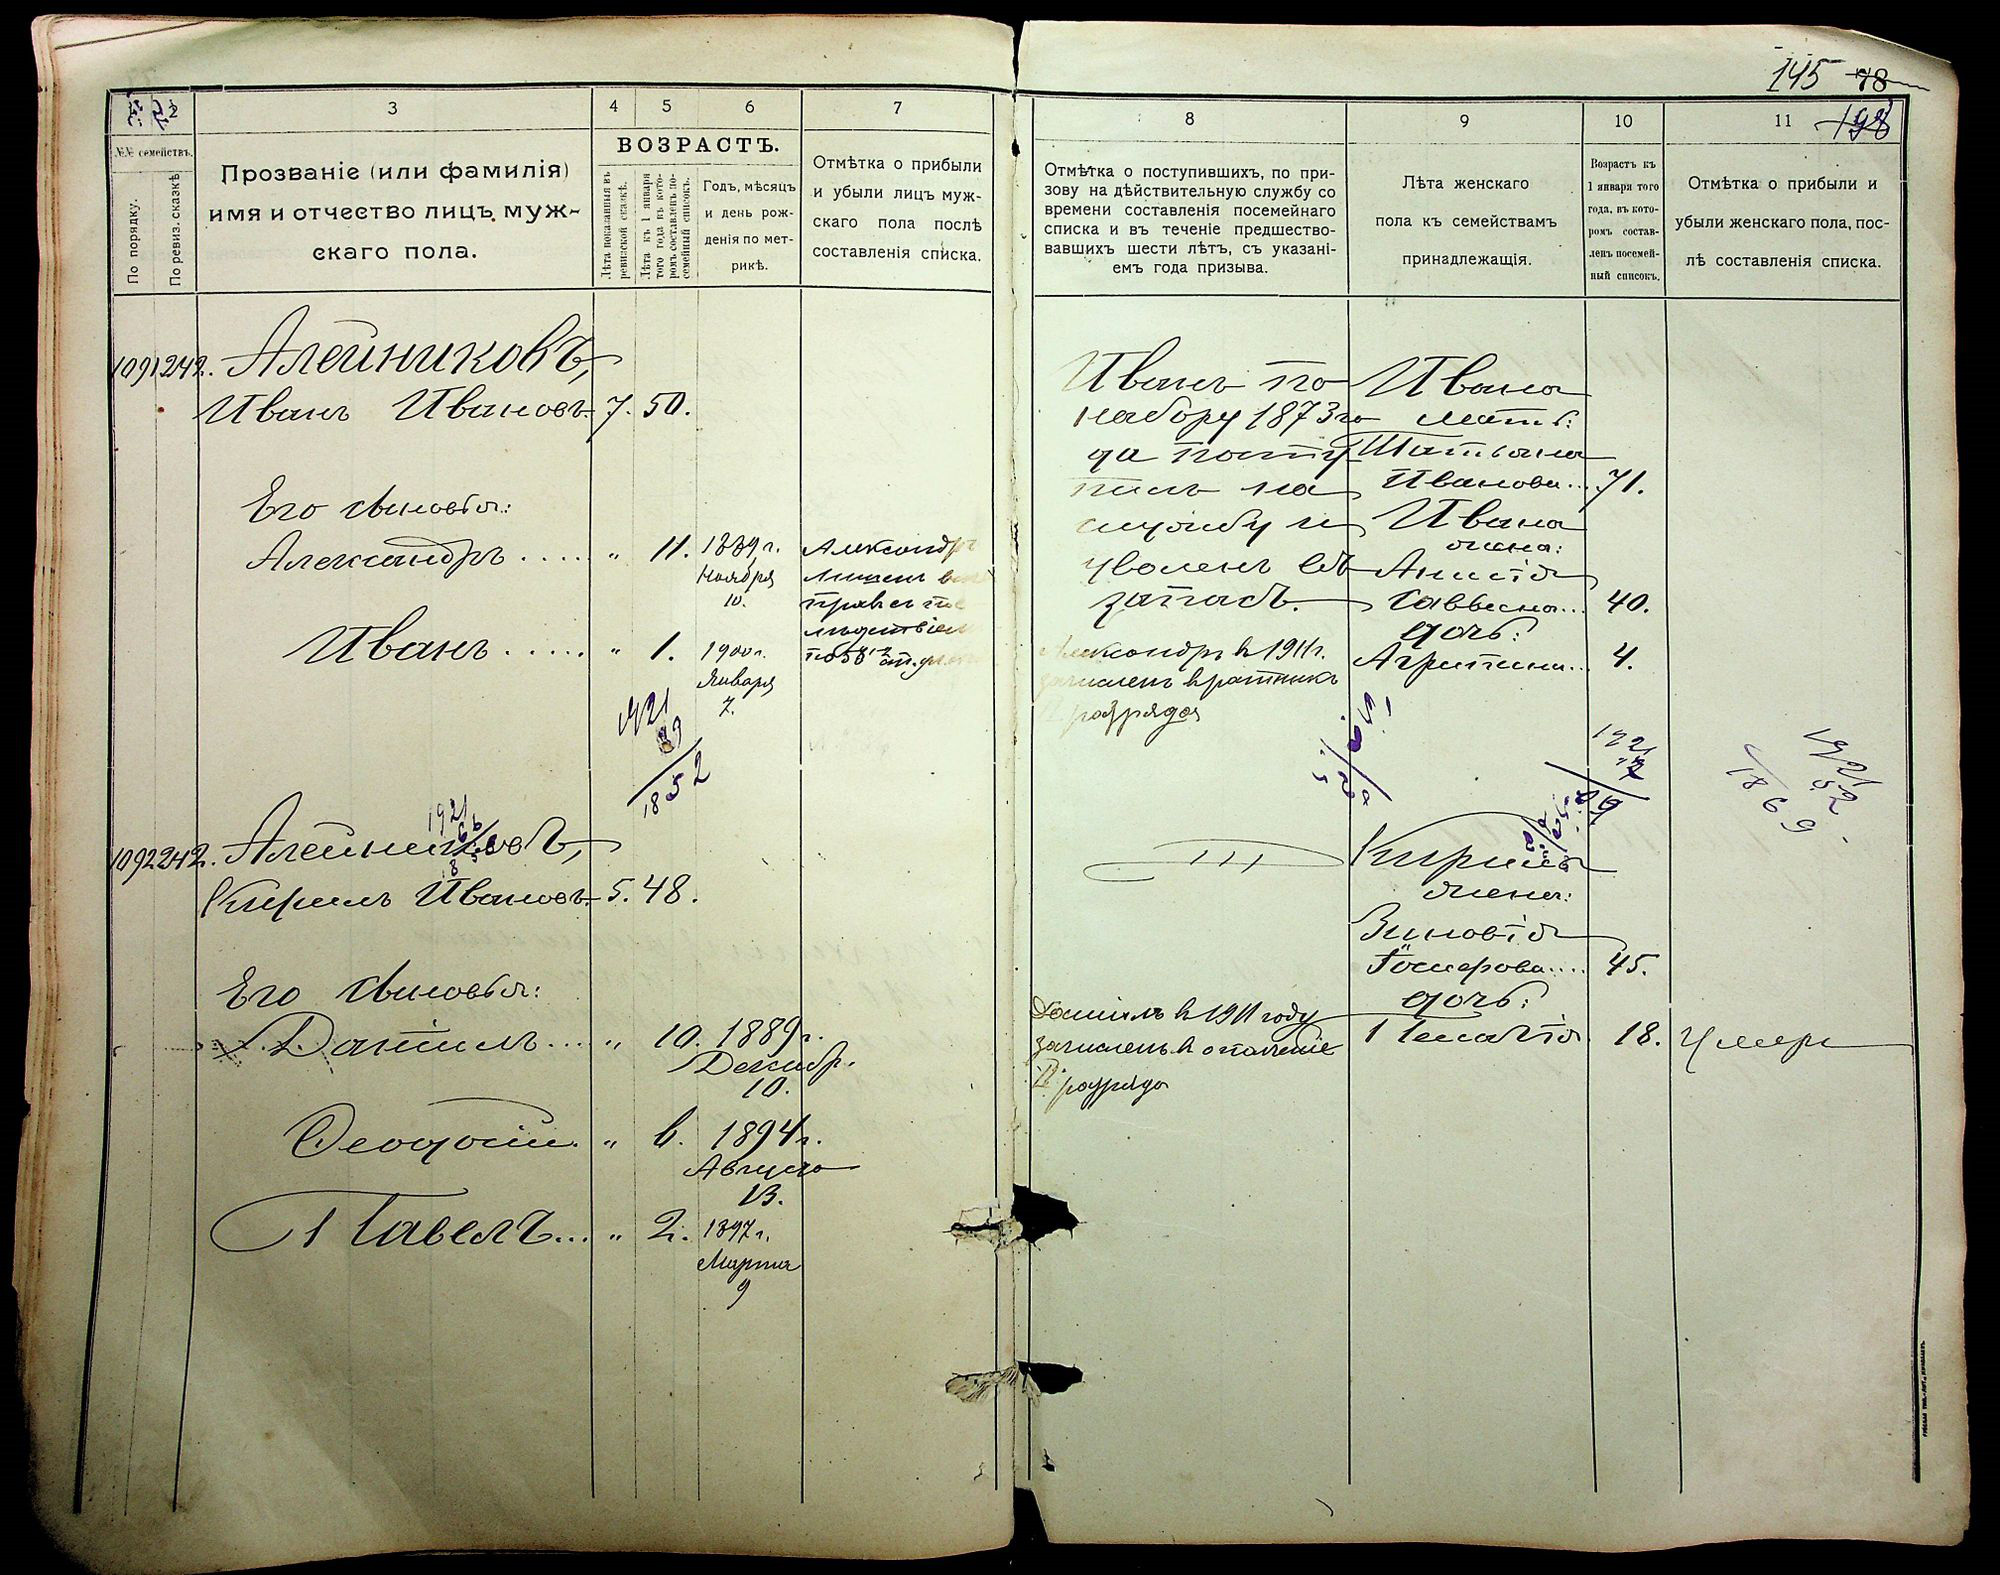 145 78
198
2
3
4
5
6
7
№№ семействъ.
По порядку.
По ревиз. сказкѣ
Прозваніе (или фамилія)
имя и отчество лицъ муж-
скаго пола.
ВОЗРАСТЪ.
Лѣта показанныя въ
ревизской сказкѣ.
Лѣта къ 1 января
того года въ кото-
ромъ составленъ по-
семейный списокъ.
Годъ, мѣсяцъ
и день рож-
денія по мет-
рикѣ.
Отмѣтка о прибыли
и убыли лицъ муж-
скаго пола послѣ
составленія списка.
1091 242. Алейниковъ,
Иванъ Ивановъ 7. 50.
Его сыновья:
Александръ ..... " 11. 1889 г.
Ноября
10.
Александръ
Иванъ ..... " 1. 1900 г.
Января
7.
1921
1852
1921
1092 242. Алейниковъ,
Кирилъ Ивановъ 5. 48.
Его сыновья:
Данiилъ ... " 10. 1889 г.
Декабр.
10.
" 6. 1894 г.
Августа
13.
Павелъ ... " 2. 1897 г.
Марта
9
8
9
10
11
Отмѣтка о поступившихъ, по при-
зову на дѣйствительную службу со
времени составленія посемейнаго
списка и въ теченіе предшество-
вавшихъ шести лѣтъ, съ указані-
емъ года призыва.
Лѣта женскаго
пола къ семействамъ
принадлежащія.
Возрастъ къ
1 января того
года, въ кото-
ромъ состав-
ленъ посемей-
ный списокъ.
Отмѣтка о прибыли и
убыли женскаго пола, пос-
лѣ составленія списка.
Иванъ по
набору 1873 го
да посту
пилъ на
службу и
уволенъ въ
запасъ.
Александръ в 1911 г.
зачисленъ в ратники
разряда
Ивана
мать:
Татьяна
Иванова... 71.
Ивана
жена:
Анисiя
Саввина... 40.
дочь:
Агрипина... 4.
1921
1921
52
1869
Кирила
жена:
Зиновiя
.... 45.
дочь:
18. Умерла
Данiилъ в 1911 году
зачисленъ в ополченiе
разряда